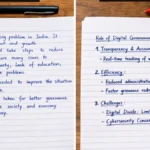 ing problem in India. It
ment and growth.
take steps to reduce
are many cause to
ty, lack of education,
problems.
needed to improve the situation
taken for better governance
society and economy
Role of Digital Governm
1. Transparency & Accoun
- Real-time tracking of
2. Efficiency:
- Reduced administrat
- Faster grievance redr
3. Challenges:
- Digital Divide: Limit
- Cybersecurity Concer